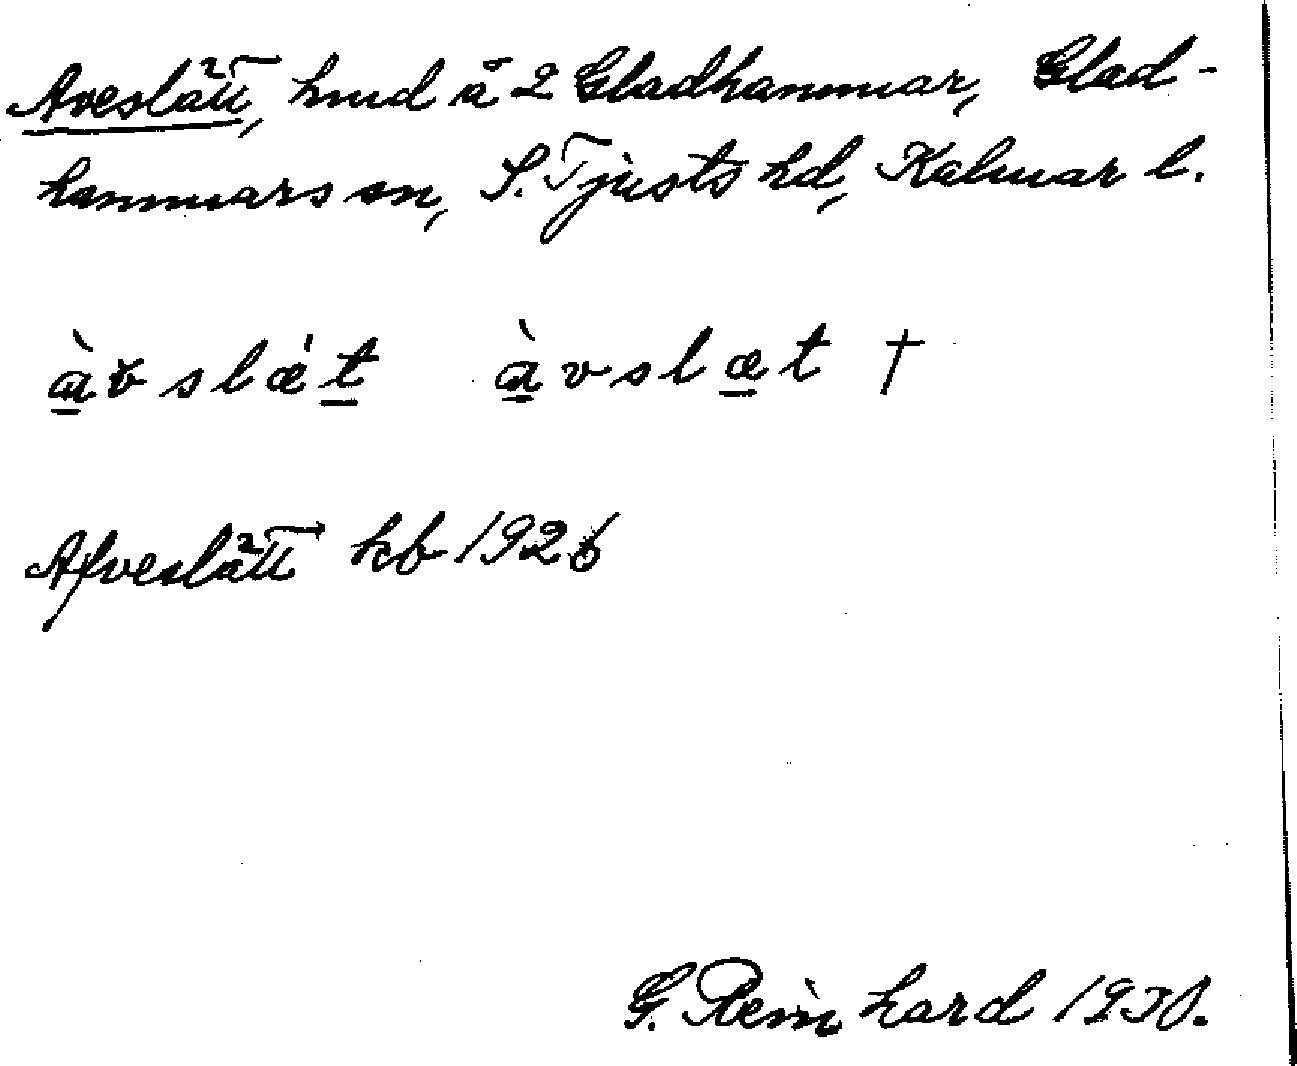 Aveslätt, hmd å 2 Gladhammar, Glad-
hammars sn, S. Tjusts hd, Kalmar l.
àvslæ̀t àvslæt †
Afveslätt kb 1926
G. Reinhard